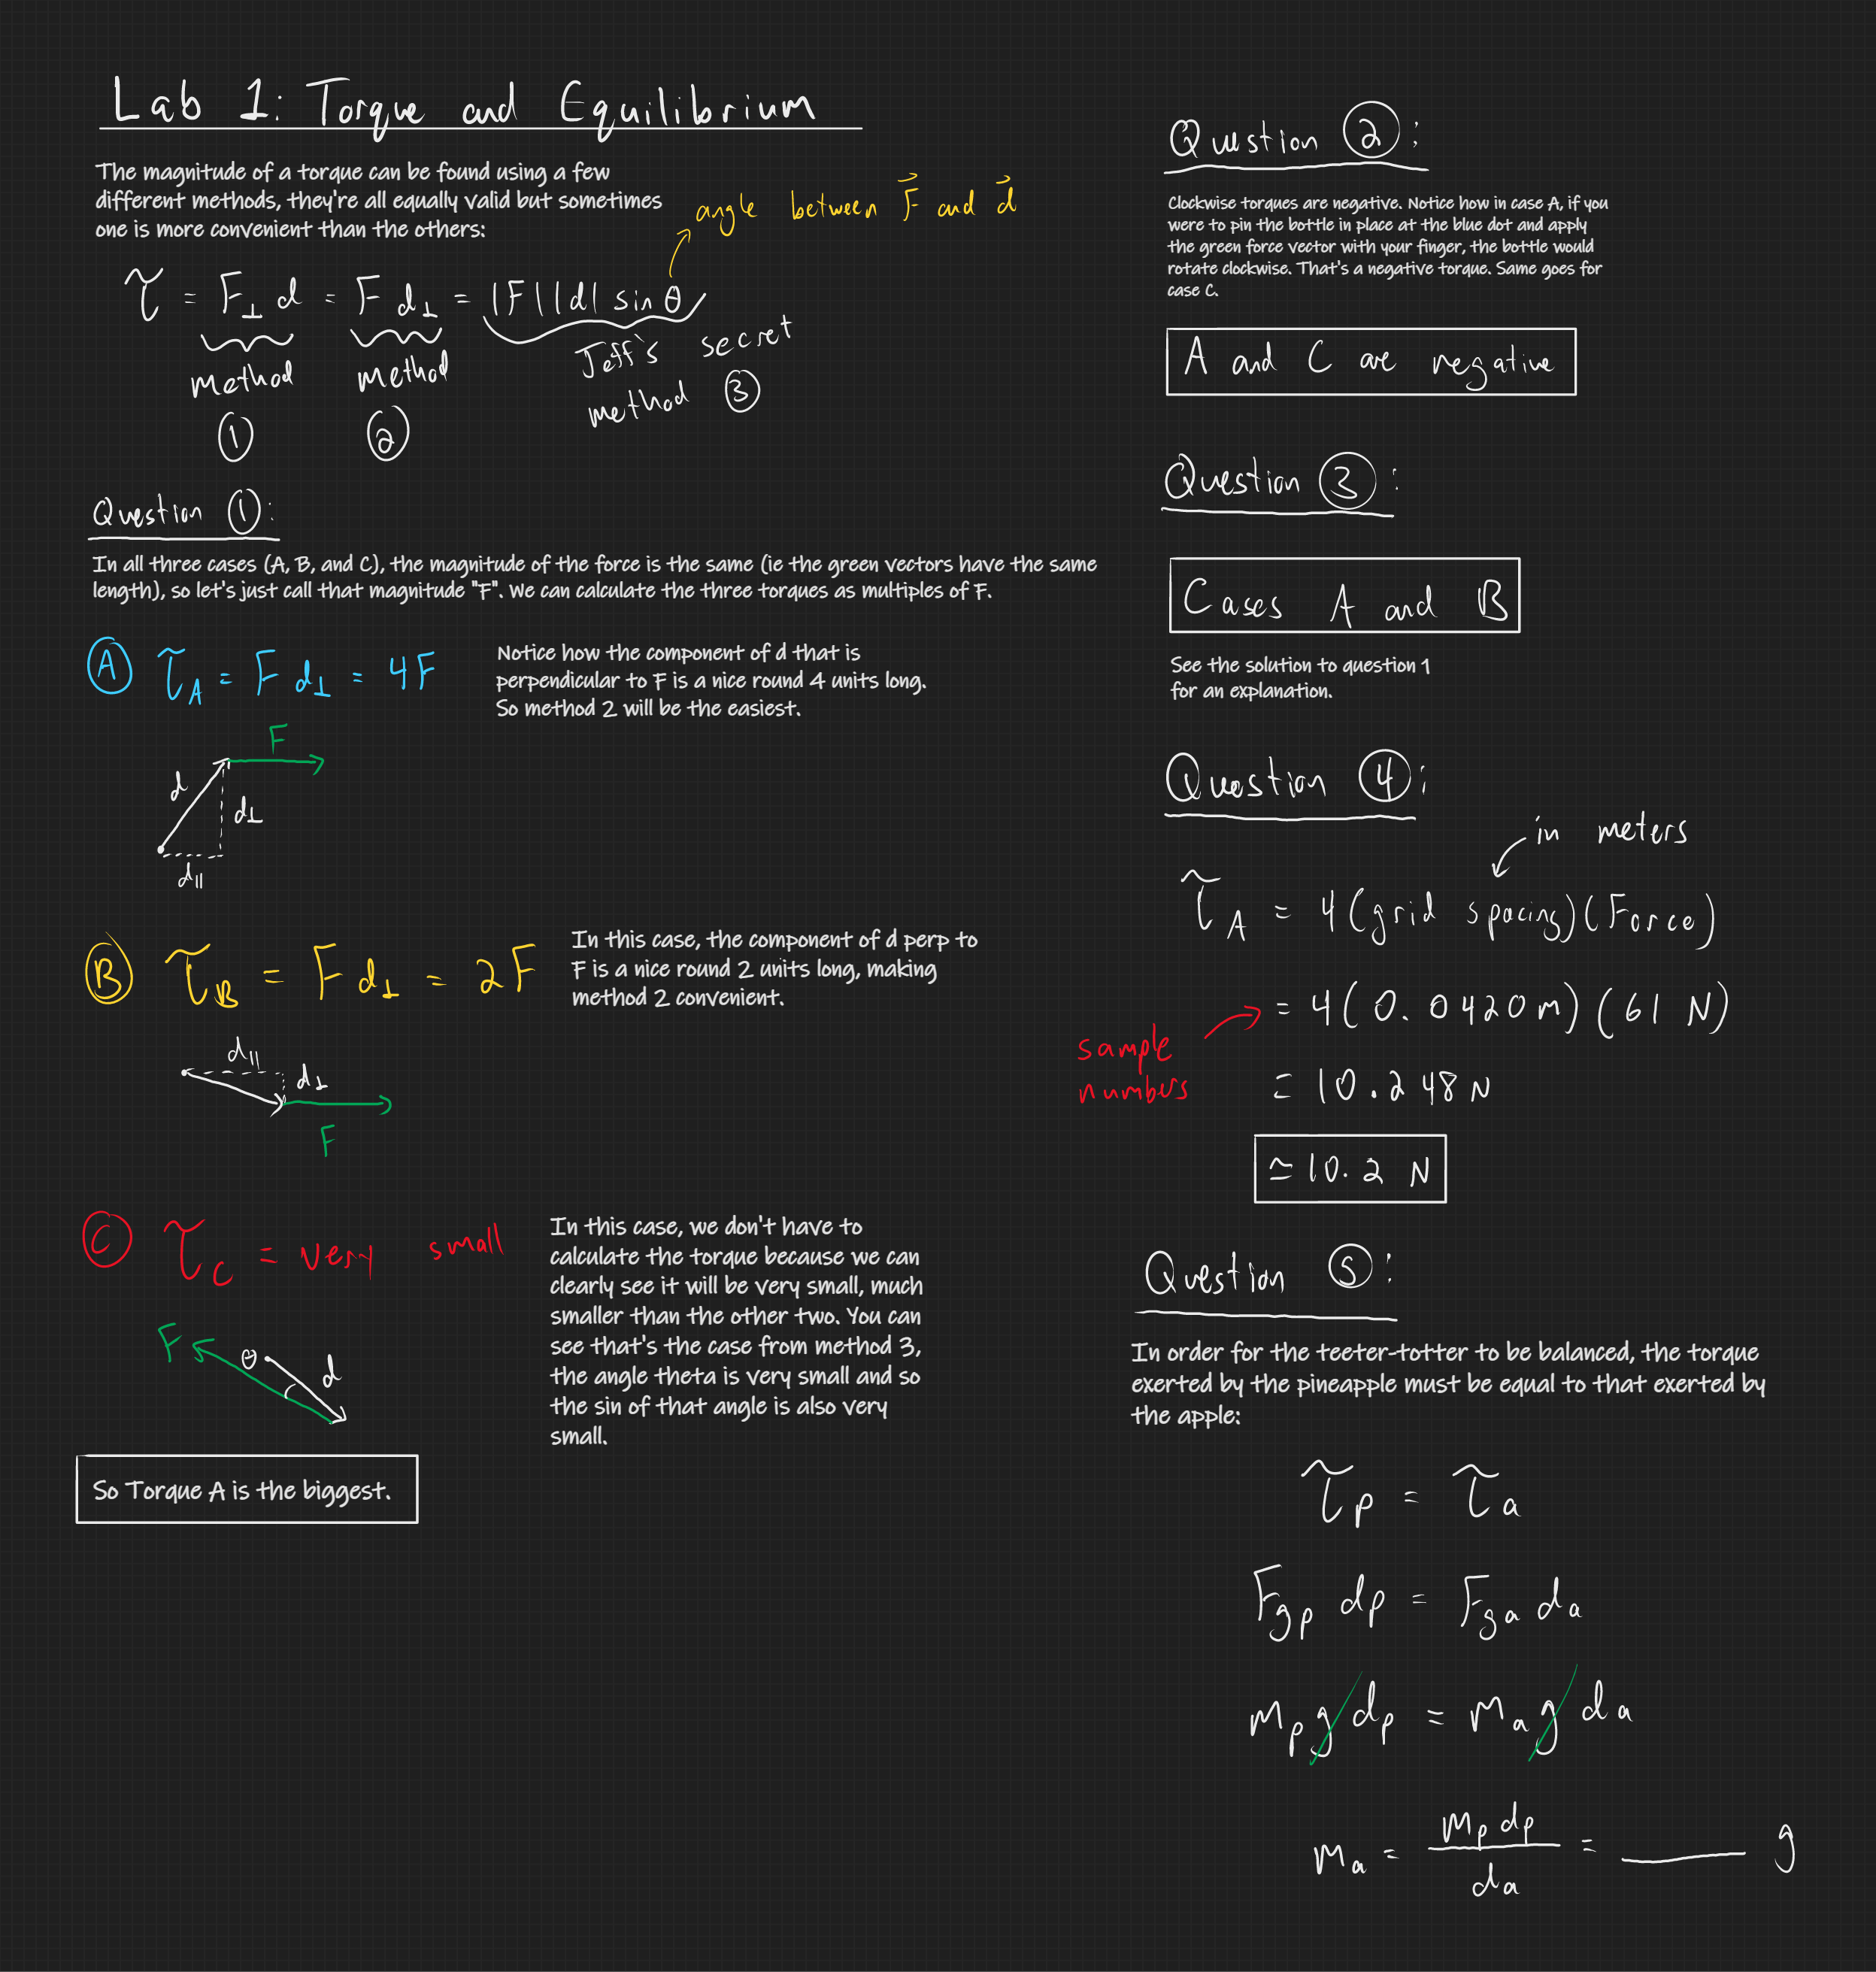 Lab 1: Torque and Equilibrium
The magnitude of a torque can be found using a few
different methods, they're all equally valid but sometimes
one is more convenient than the others:
angle between F⃗ and d⃗
τ = F⊥ d = F d⊥ = |F||d| sin θ
method
①
method
②
Jeff's secret
method ③
Question ①:
In all three cases (A, B, and C), the magnitude of the force is the same (ie the green vectors have the same
length), so let's just call that magnitude "F". We can calculate the three torques as multiples of F.
Ⓐ τ_A = F d⊥ = 4F
Notice how the component of d that is
perpendicular to F is a nice round 4 units long.
So method 2 will be the easiest.
F
d
d⊥
d||
Ⓑ τ_B = F d⊥ = 2F
In this case, the component of d perp to
F is a nice round 2 units long, making
method 2 convenient.
d||
d⊥
F
Ⓒ τ_C = very small
In this case, we don't have to
calculate the torque because we can
clearly see it will be very small, much
smaller than the other two. You can
see that's the case from method 3,
the angle theta is very small and so
the sin of that angle is also very
small.
F
θ
d
So Torque A is the biggest.
Question ②:
Clockwise torques are negative. Notice how in case A, if you
were to pin the bottle in place at the blue dot and apply
the green force vector with your finger, the bottle would
rotate clockwise. That's a negative torque. Same goes for
case C.
A and C are negative
Question ③:
Cases A and B
See the solution to question 1
for an explanation.
Question ④:
in meters
τ_A = 4(grid spacing)(Force)
= 4(0.0420m)(61 N)
sample
numbers
= 10.248 N
≃ 10.2 N
Question ⑤:
In order for the teeter-totter to be balanced, the torque
exerted by the pineapple must be equal to that exerted by
the apple:
τ_p = τ_a
F_gp d_p = F_ga d_a
m_p g d_p = m_a g d_a
m_a = m_p d_p / d_a = ____ g